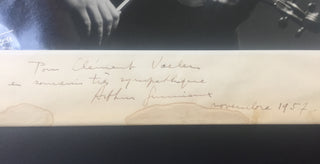 Pour Clément Vaelens
en souvenir très sympathique
Arthur Grumiaux
novembre 1957.